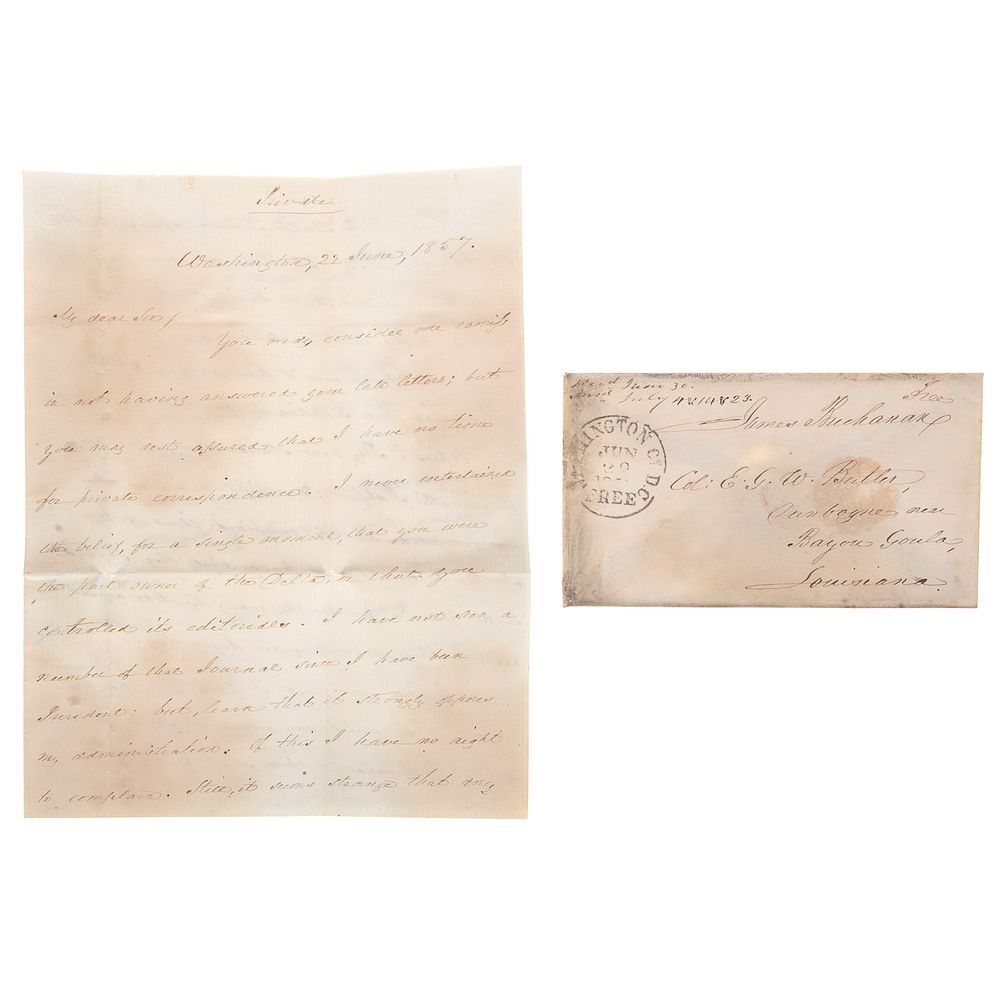 Private
Washington, 22 June, 1857.
My dear Sir/
You may consider me remiss
in not having answered your late letters; but
you may rest assured that I have no time
for private correspondence. I never entertained
the belief, for a single moment, that you were
the part owner of the Delta, or that you
controlled its editorials. I have not seen a
number of that Journal since I have been
President; but, learn that it strongly opposes
my administration. Of this I have no right
to complain. Still, it seems strange that any
Recd June 30.
July 4 & 14 & 23.
Free
James Buchanan
WASHINGTON CY. D.C.
JUN
FREE
Col: E. G. W. Butler,
Dunboyne near
Bayou Goula,
Louisiana